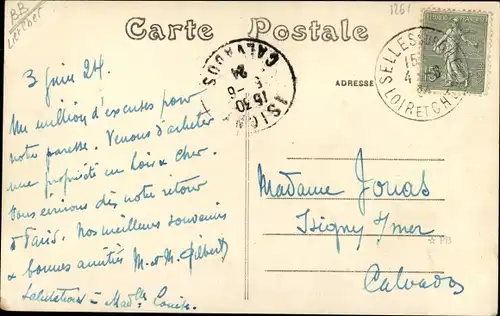 BB
Loir et Cher
1261
Carte Postale
ADRESSE
SELLES
LOIR ET CHER
ISIGNY
15 30
5 -6
24
CALVADOS
3 Juin 24.
Un million d'excuses pour
notre paresse. Venons d'acheter
une propriété en Loir & Cher.
Vous écrirons dès notre retour
à Paris. Nos meilleurs souvenirs
& bonnes amitiés M. et M. Gilbert
Salutations à Madlle Louise.
Madame Jouas
Isigny s/mer
Calvados